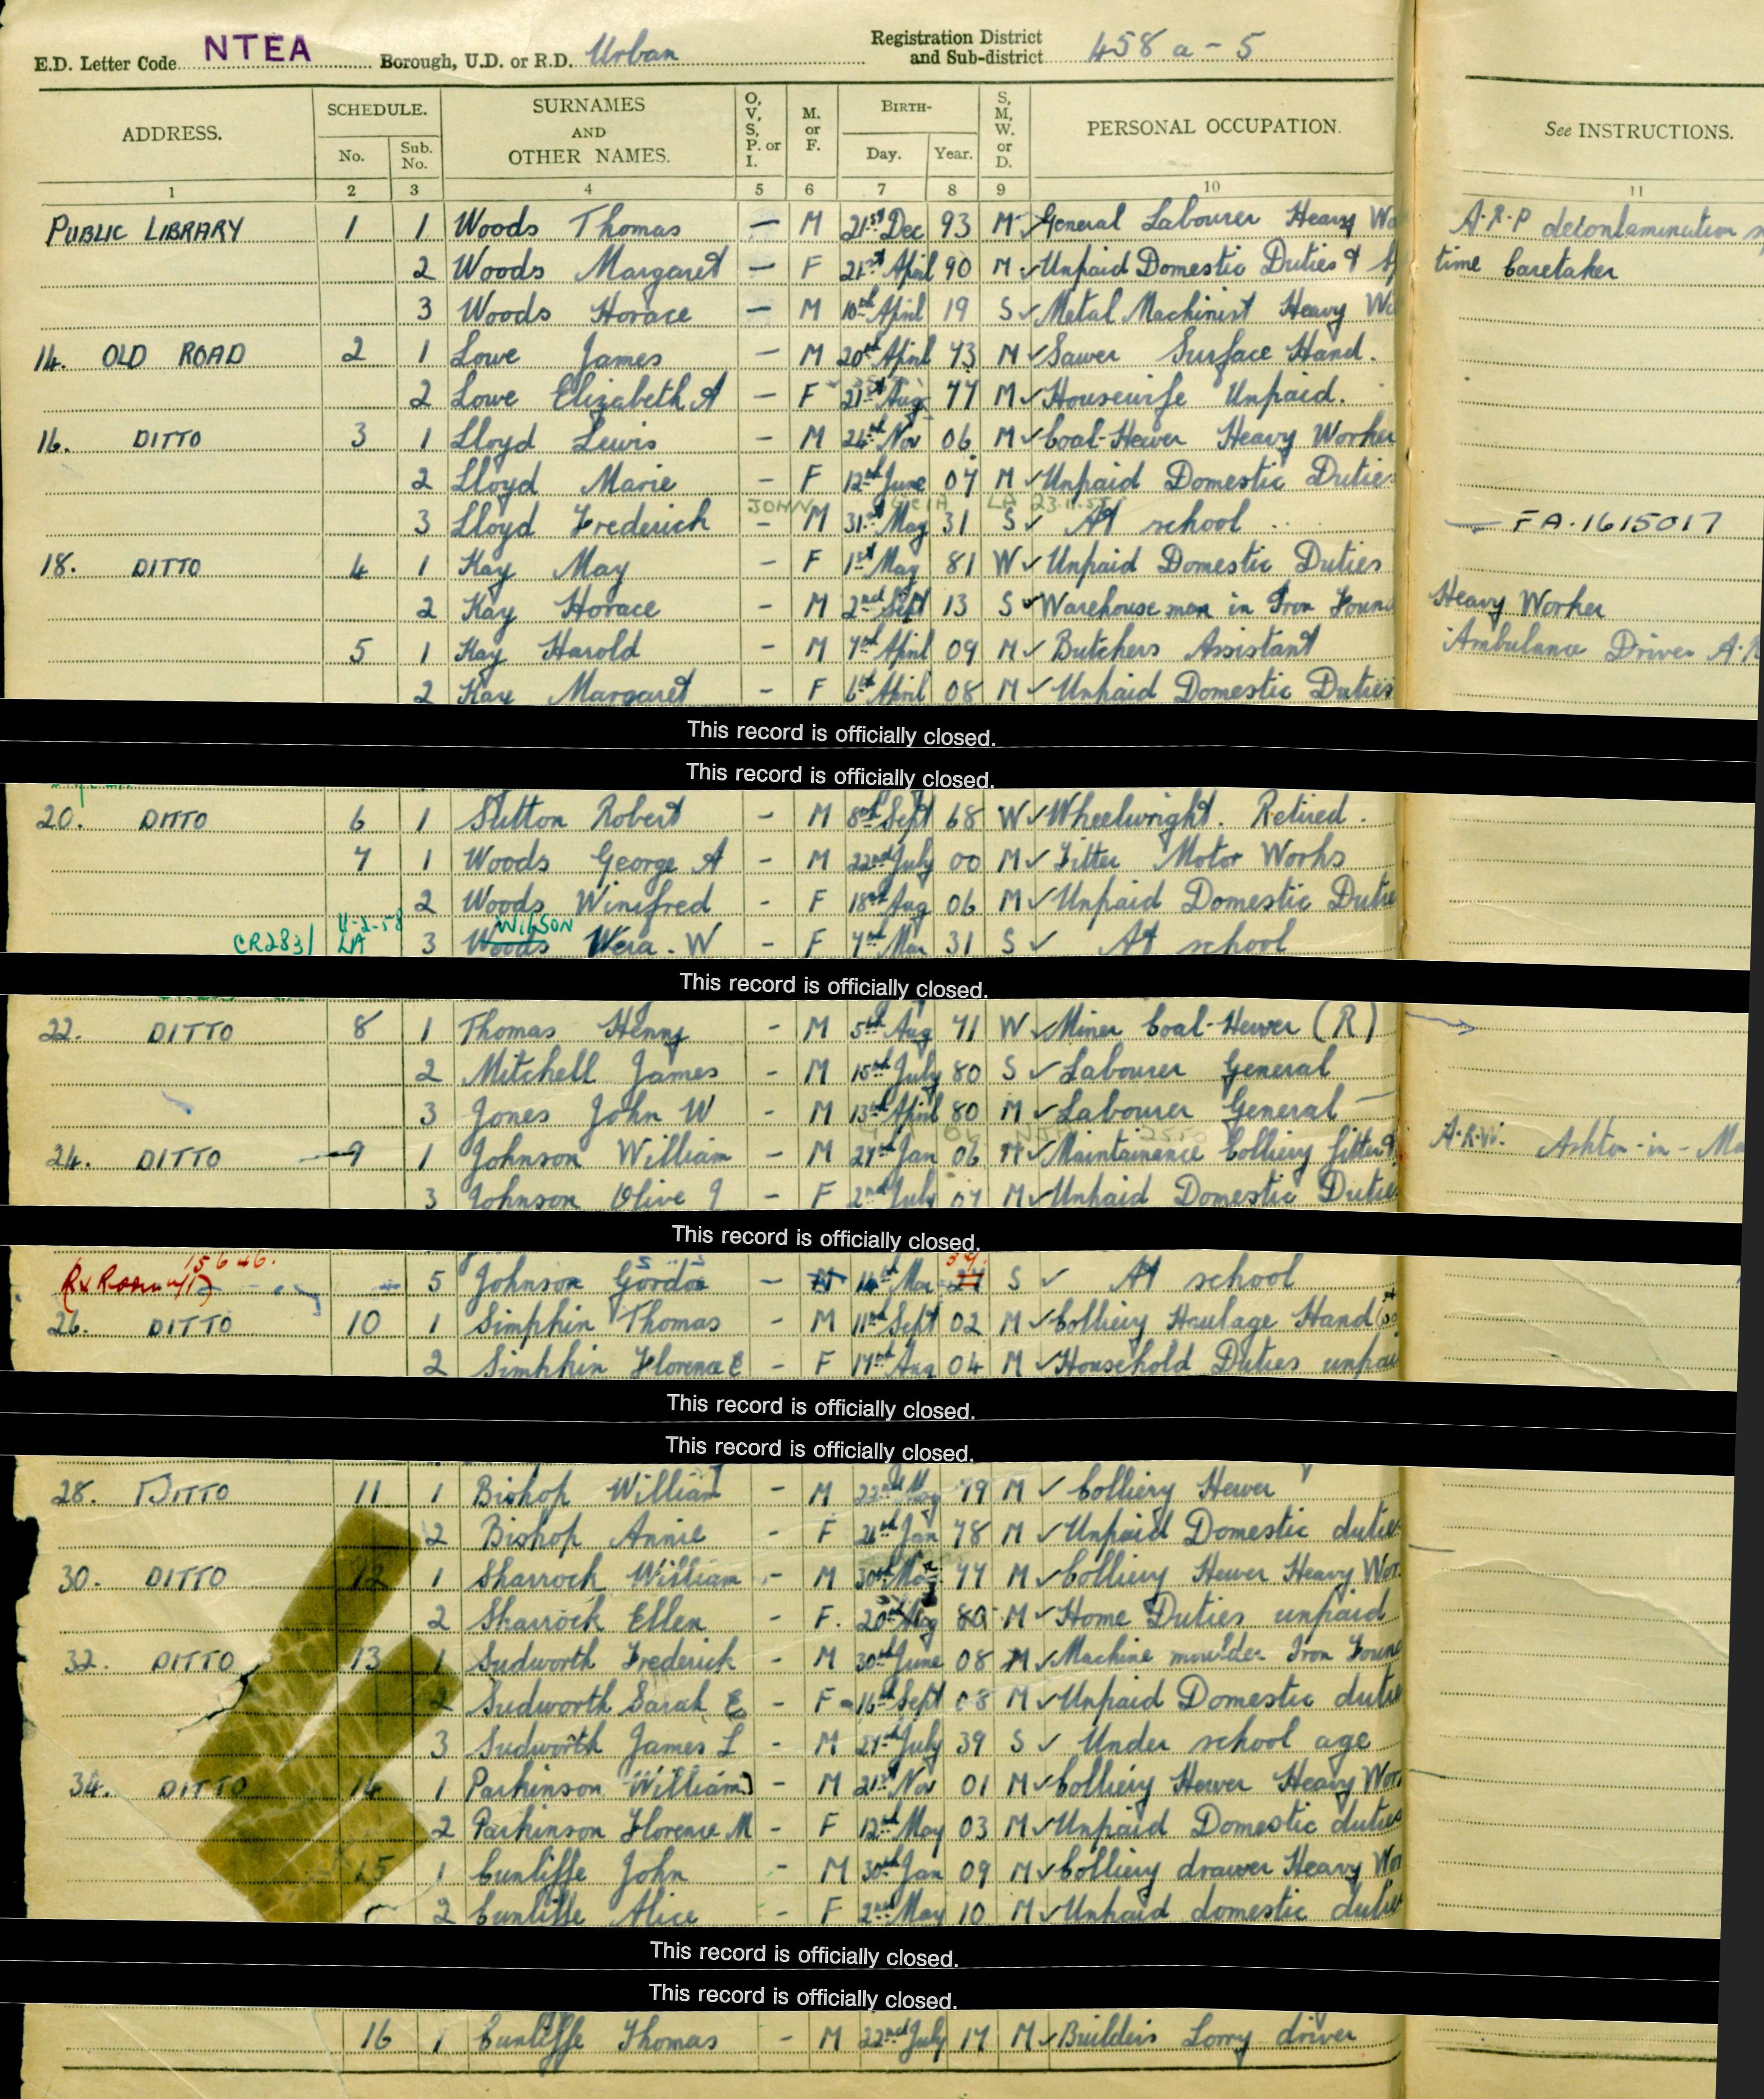 E.D. Letter Code NTEA Borough, U.D. or R.D. Urban Registration District and Sub-district 458 a - 5
ADDRESS. SCHEDULE. No. Sub. No. SURNAMES AND OTHER NAMES. O, V, S, P. or I. M. or F. BIRTH- Day. Year. S, M, W. or D. PERSONAL OCCUPATION. See INSTRUCTIONS.
1 2 3 4 5 6 7 8 9 10 11
PUBLIC LIBRARY 1 1 Woods Thomas — M 21st Dec 93 M General Labourer Heavy A.R.P decontamination
2 Woods Margaret — F 21st April 90 M Unpaid Domestic Duties & time Caretaker
3 Woods Horace — M 10th April 19 S Metal Machinist Heavy
14. OLD ROAD 2 1 Lowe James — M 20th April 73 M Sawer Surface Hand.
2 Lowe Elizabeth A — F 21st Aug 77 M Housewife Unpaid.
16. DITTO 3 1 Lloyd Lewis - M 24th Nov 06 M Coal-Hewer Heavy Worker
2 Lloyd Marie - F 12th June 07 M Unpaid Domestic Duties
JOHN LA
3 Lloyd Frederick - M 31st May 31 S At school FA.1615017
18. DITTO 4 1 Kay May - F 1st May 81 W Unpaid Domestic Duties
2 Kay Horace - M 2nd Sept 13 S Warehouse man in Iron Heavy Worker
5 1 Kay Harold - M 7th April 09 M Butchers Assistant Ambulance Driver
2 Kay Margaret - F 6th April 08 M Unpaid Domestic Duties
This record is officially closed.
This record is officially closed.
20. DITTO 6 1 Sutton Robert - M 8th Sept 68 W Wheelwright. Retired.
7 1 Woods George A - M 22nd July 00 M Fitter Motor Works
2 Woods Winifred - F 18th Aug 06 M Unpaid Domestic Dutie
11-2-58 WILSON
CR283/ LA 3 Woods Vera. W - F 7th Mar 31 S At school
This record is officially closed.
22. DITTO 8 1 Thomas Henry - M 5th Aug 71 W Miner Coal-Hewer (R)
2 Mitchell James - M 15th July 80 S Labourer General
3 Jones John W - M 13th April 80 M Labourer General
24. DITTO 9 1 Johnson William - M 27th Jan 06 M Maintainance Colliery fitter A.R.W. Ashton-in-Ma
3 Johnson Olive J - F 2nd July 07 M Unpaid Domestic Dutie
This record is officially closed.
15 6 46. 34
5 Johnson Gordon — M 14th Mar S At school
26. DITTO 10 1 Simpkin Thomas - M 11th Sept 02 M Colliery Haulage Hand
2 Simpkin Florence E - F 17th Aug 04 M Household Duties unpai
This record is officially closed.
This record is officially closed.
28. DITTO 11 1 Bishop William - M 22nd May 79 M Colliery Hewer
2 Bishop Annie - F 26th Jan 78 M Unpaid Domestic dutie
30. DITTO 12 1 Sharrock William - M 30th 77 M Colliery Hewer Heavy Wor
2 Sharrock Ellen - F. 20th Aug 80 M Home Duties unpaid
32. DITTO 13 1 Sudworth Frederick - M 30th June 08 M Machine moulder Iron Foun
2 Sudworth Sarah E - F 16th Sept 08 M Unpaid Domestic dutie
3 Sudworth James L - M 27th July 39 S Under school age
34. DITTO 14 1 Parkinson William - M 21st Nov 01 M Colliery Hewer Heavy Wor
2 Parkinson Florence M - F 12th May 03 M Unpaid Domestic dutie
15 1 Cunliffe John - M 30th Jan 09 M Colliery drawer Heavy Wor
2 Cunliffe Alice - F 2nd May 10 M Unpaid domestic dutie
This record is officially closed.
This record is officially closed.
16 1 Cunliffe Thomas - M 22nd July 17 M Builders Lorry driver